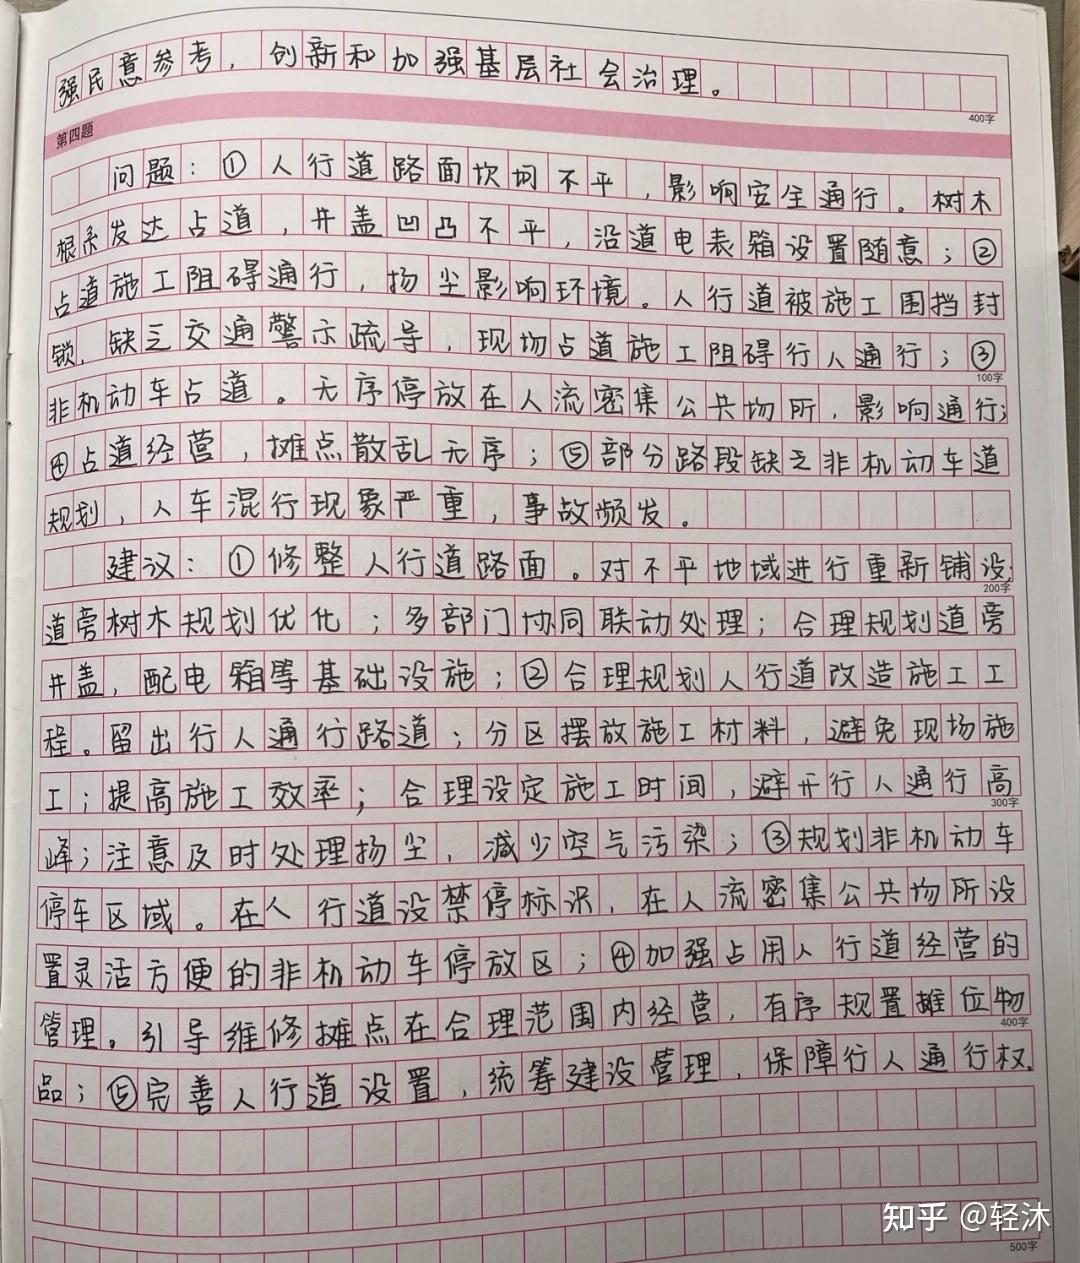 强民意参考，创新和加强基层社会治理。
400字
第四题
问题：①人行道路面坎坷不平，影响安全通行。树木
根系发达占道，井盖凹凸不平，沿道电表箱设置随意；②
占道施工阻碍通行，扬尘影响环境。人行道被施工围挡封
锁，缺乏交通警示疏导，现场占道施工阻碍行人通行；③
100字
非机动车占道。无序停放在人流密集公共场所，影响通行；
④占道经营，摊点散乱无序；⑤部分路段缺乏非机动车道
规划，人车混行现象严重，事故频发。
建议：①修整人行道路面。对不平地域进行重新铺设；
200字
道旁树木规划优化；多部门协同联动处理；合理规划道旁
井盖，配电箱等基础设施；②合理规划人行道改造施工工
程。留出行人通行路道；分区摆放施工材料，避免现场施
工；提高施工效率；合理设定施工时间，避开行人通行高
300字
峰；注意及时处理扬尘，减少空气污染；③规划非机动车
停车区域。在人行道设禁停标识，在人流密集公共场所设
置灵活方便的非机动车停放区；④加强占用人行道经营的
管理。引导维修摊点在合理范围内经营，有序规置摊位物
400字
品；⑤完善人行道设置，统筹建设管理，保障行人通行权。
知乎 @轻沐
500字